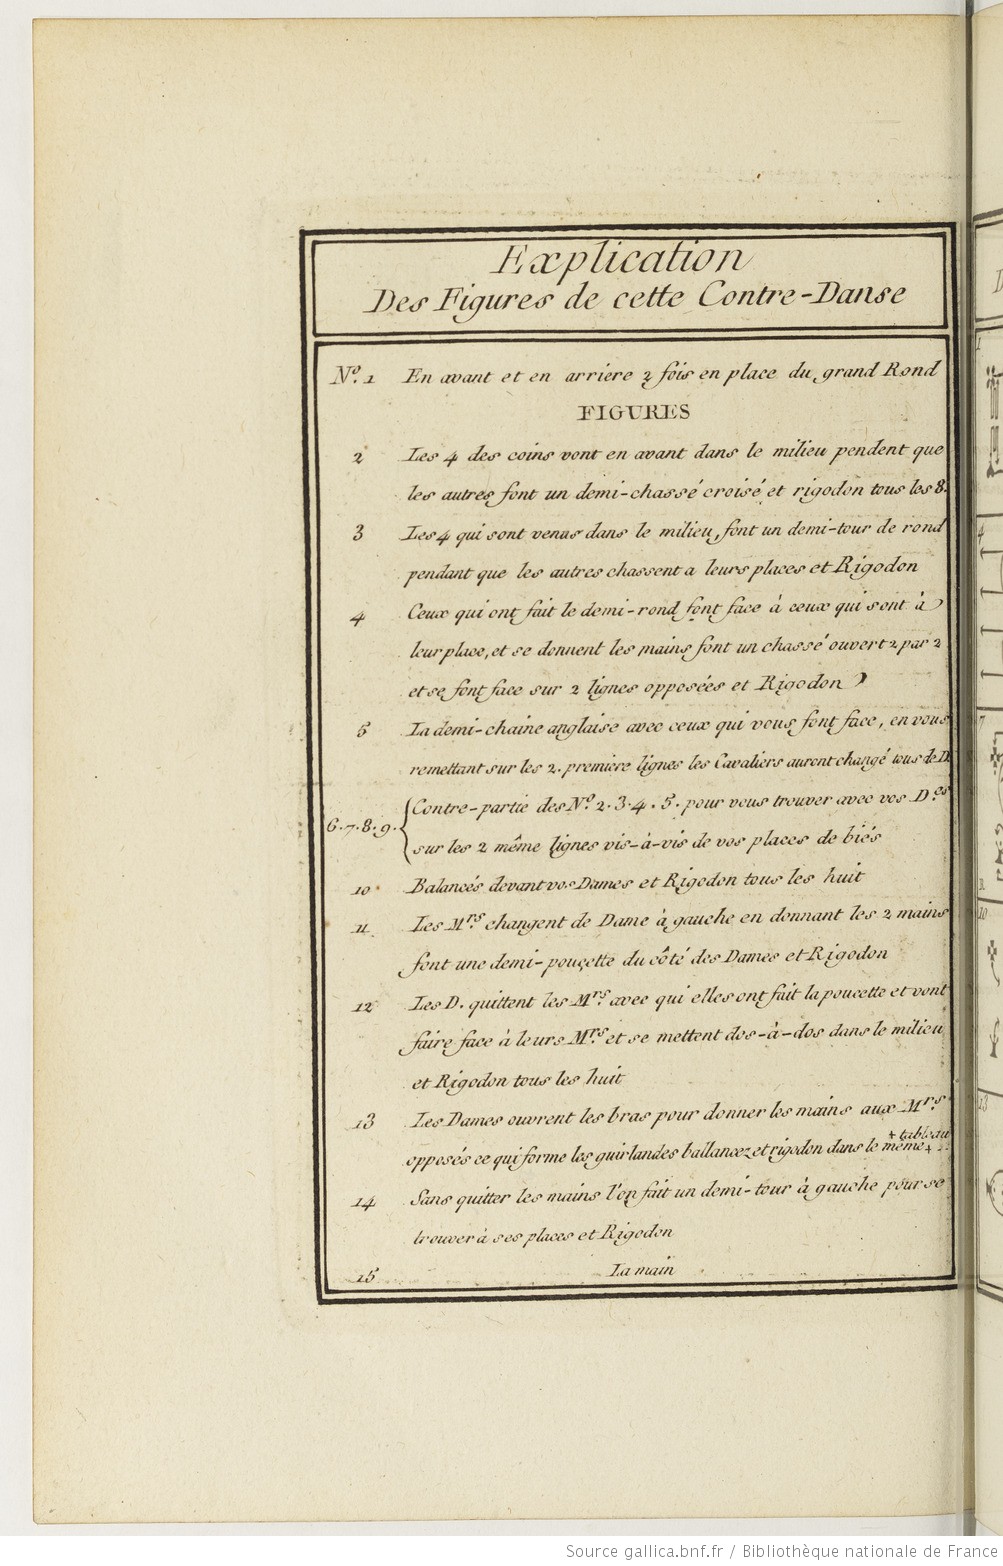 Explication
Des Figures de cette Contre-Danse
Nº. 1 En avant et en arriere 2 fois en place du grand Rond
FIGURES
2 Les 4 des coins vont en avant dans le milieu pendent que
les autres font un demi-chassé croisé, et rigodon tous les 8.
3 Les 4 qui sont venus dans le milieu, font un demi-tour de rond
pendant que les autres chassent a leurs places et Rigodon
4 Ceux qui ont fait le demi-rond font face à ceux qui sont à
leur place, et se donnent les mains font un chassé ouvert 2 par 2
et se font face sur 2 lignes opposées et Rigodon
5 La demi-chaine anglaise avec ceux qui vous font face, en vous
remettant sur les 2. premiere lignes les Cavaliers auront changé tous de D.
6.7.8.9. Contre-partie des Nº 2.3.4.5. pour vous trouver avec vos D.es
sur les 2 même lignes vis-à-vis de vos places de biés
10 Balancés devant vos Dames et Rigodon tous les huit
11. Les Mrs. changent de Dame à gauche en donnant les 2 mains
font une demi-pouçette du côté des Dames et Rigodon
12 Les D. quittent les Mrs. avec qui elles ont fait la poucette et vont
faire face à leurs Mrs. et se mettent dos-à-dos dans le milieu
et Rigodon tous les huit
13 Les Dames ouvrent les bras pour donner les mains aux Mrs.
+ tableau
opposés ce qui forme les guirlandes ballancez et rigodon dans le même +
14 Sans quitter les mains l'on fait un demi-tour à gauche pour se
trouver à ses places et Rigodon
15 La main
1
4
7
10
13
Source gallica.bnf.fr / Bibliothèque nationale de France